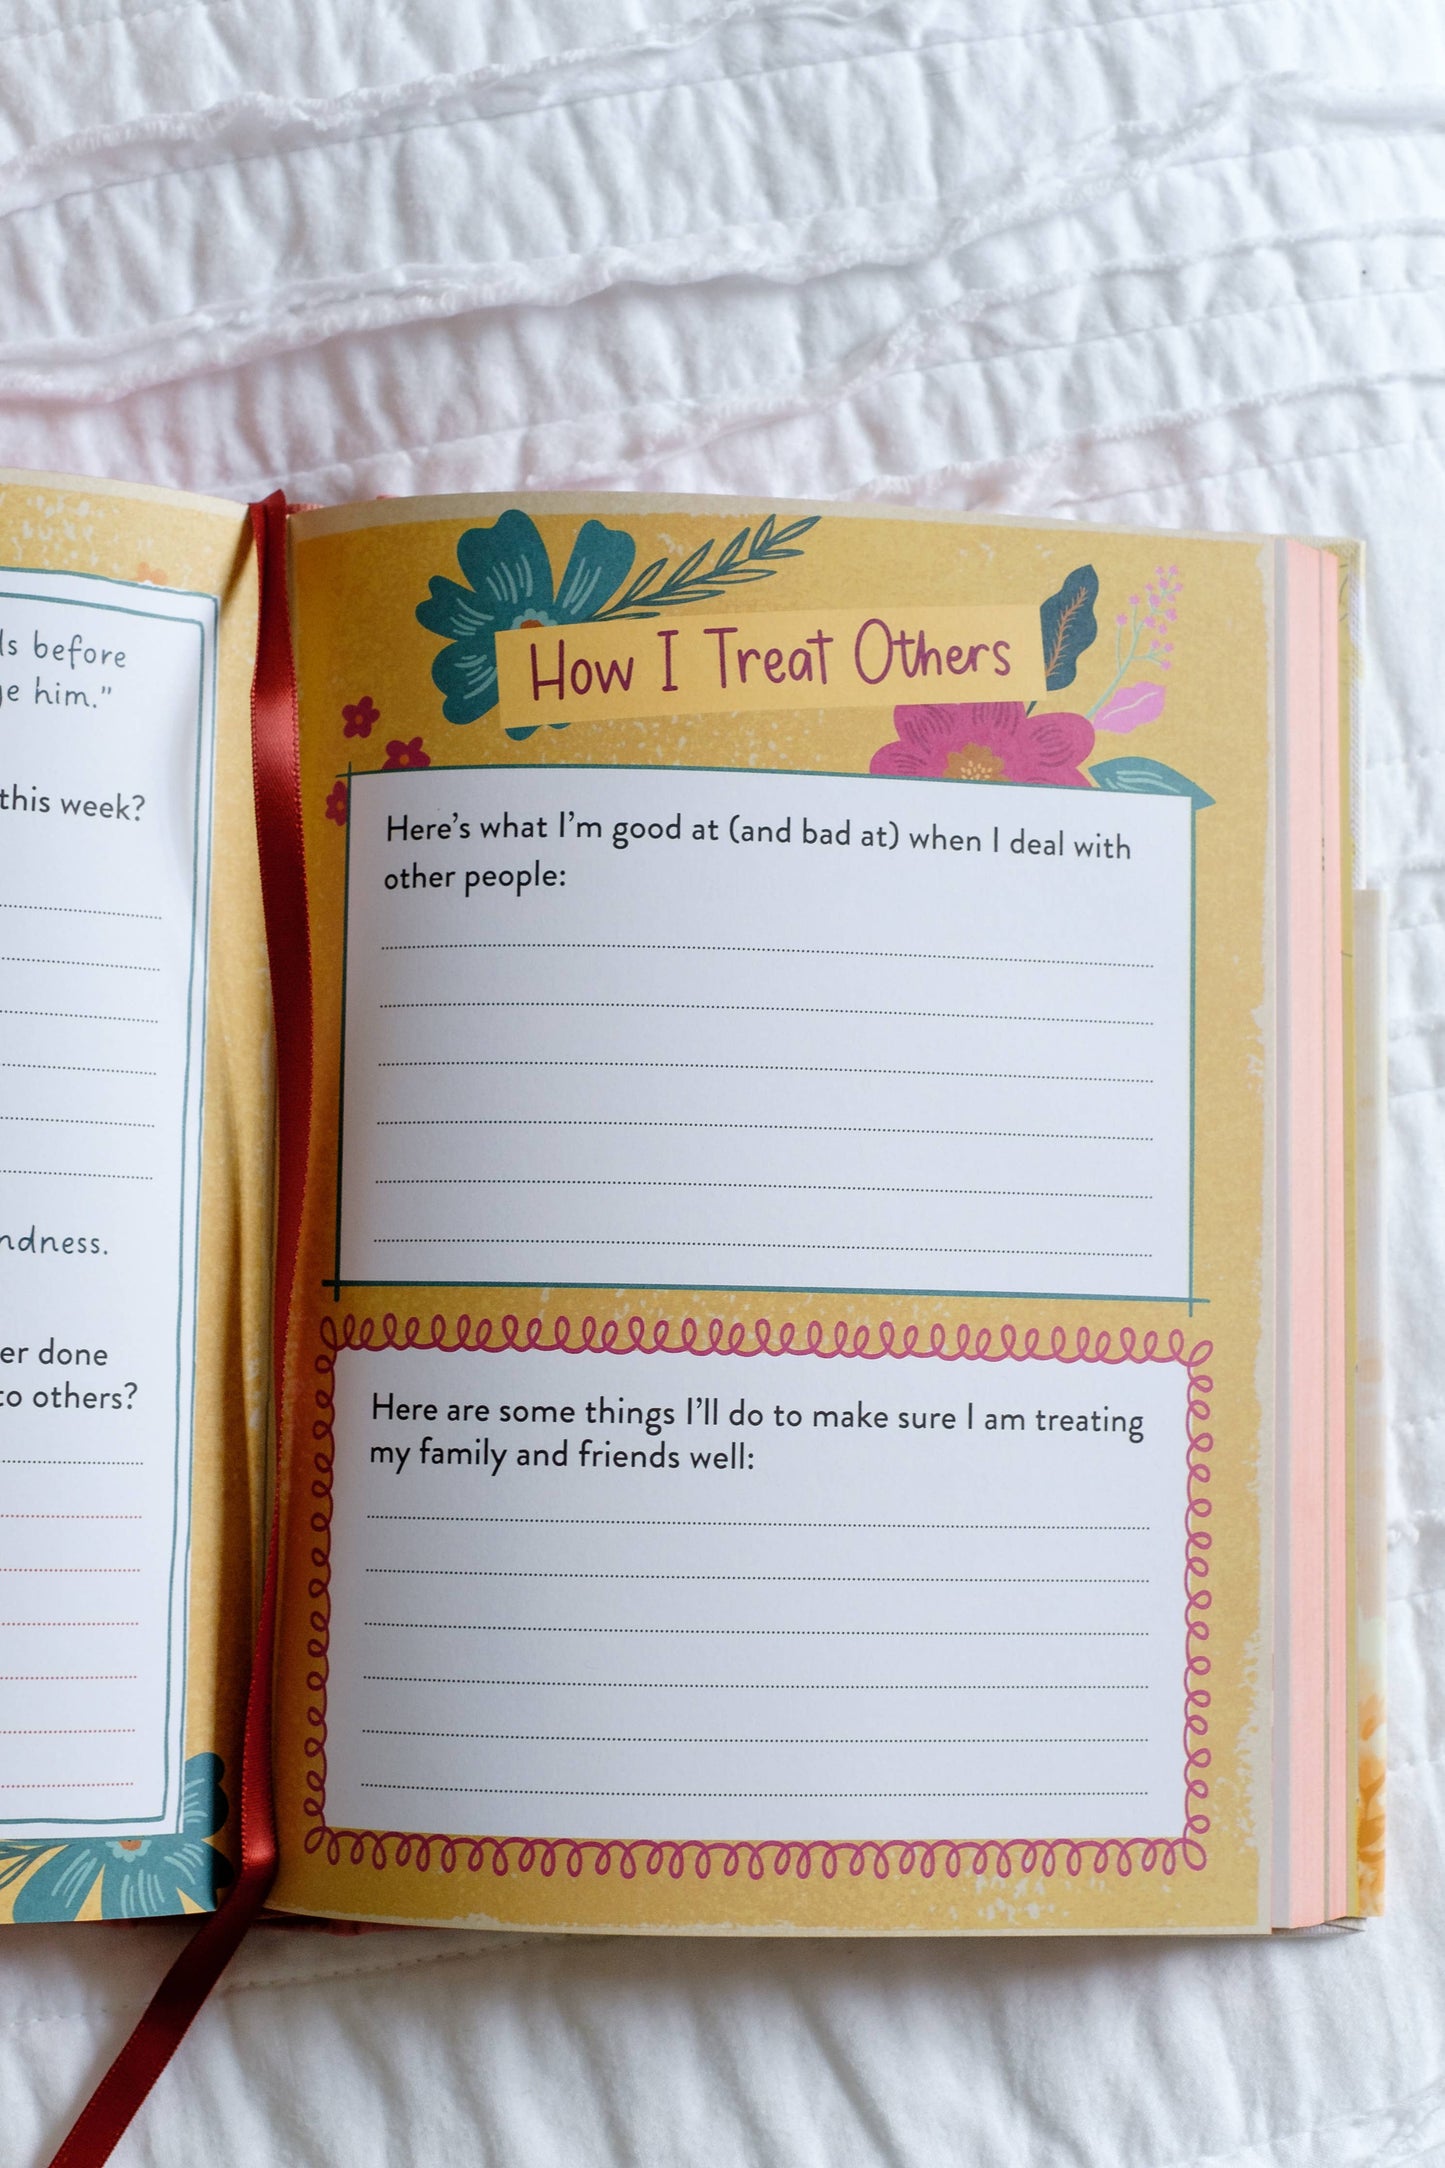 before
him."
this week?
done
others?
How I Treat Others
Here's what I'm good at (and bad at) when I deal with
other people:
Here are some things I'll do to make sure I am treating
my family and friends well: